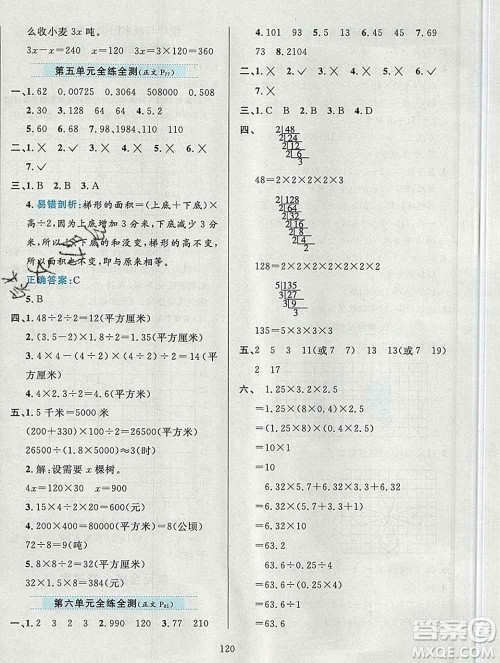 么收小麦3x吨。
3x－x=240　x=120　3×120=360
第五单元全练全测(正文P77)
一、1. 62　0.00725　0.0307　508000　0.508
2. 64　3. 8　4. 40　64　128
5. 60　6. 68　7. 98,1984,110　8. 29
二、1. √　2. ×　3. ×　4. ×　5. ×　6. ×
7. √
三、1. A　2. B　3. A
4. 易错剖析:梯形的面积=(上底＋下底)×
高÷2,因为上底增加3分米,下底减少3分
米,所以上、下底的和没变,梯形的高不变,
所以面积也不变,即与原来相等。
正确答案:C
5. B
四、1. 48÷2÷2=12(平方厘米)
2. (2＋5)×1.8÷2=6.3(平方厘米)
3. 4×4÷2=8(平方厘米)
4. (4＋3)×1÷2=3.5(平方厘米)
五、1. 5千米=5000米
(200＋330)×100÷2=26500(平方米)
26500÷(12×5)≈442(平方米)
2. 解:设需要x棵树。
4x=120×30　x=900
3. 200×400=80000(平方米)=8(公顷)
72÷8=9(吨)
4. 32×1.5×16÷2=384(平方米)
第六单元全练全测(正文P81)
一、1. 2　3　2　3　2. 990　102　990　120
3. 2　0　4. 16　5. 27　9　27　6. 210
70　7. 73　8. 2104
二、1. √　2. ×　3. ×　4. ×　5. ×　6. ×
7. ×
三、1. C　2. B　3. B　4. A　5. B
四、
2 48
2 24
2 12
2 6
3
48=2×2×2×2×3
2 128
2 64
2 32
2 16
2 8
2 4
2
128=2×2×2×2×2×2×2
5 135
3 27
3 9
3
135=5×3×3×3
五、2　5　3　11(或7　13　7　19)
2　17
六、1.25×3.2×2.5
=1.25×(8×0.4)×2.5
=(1.25×8)×(0.4×2.5)
=10×1
=10
6.32×5.7＋6.32×3.3＋6.32
=6.32×(5.7＋3.3＋1)
=6.32×10
=63.2
63.6÷2.5÷0.4
=63.6÷(2.5×0.4)
=63.6÷1
=63.6
120
作业精灵
MXQE.COM